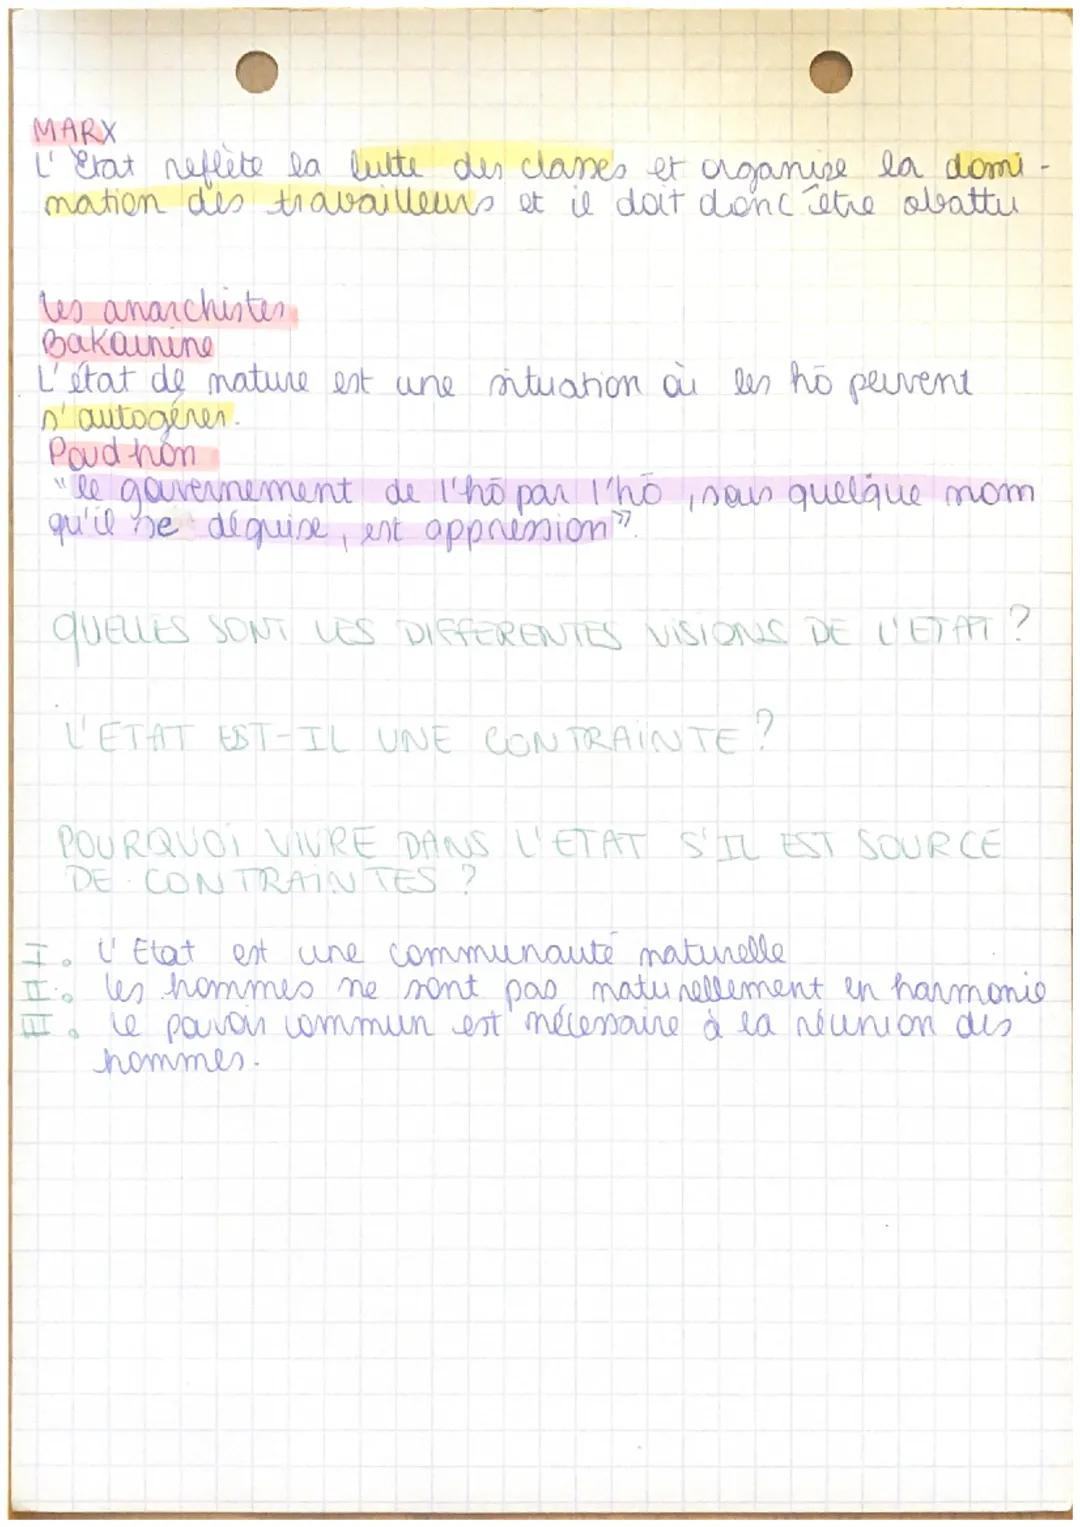 MARX
L'Etat reflète la lutte des classes et organise la domi-
nation des travailleurs et il doit donc être abattu
Les anarchistes
Bakounine
L'état de nature est une situation où les hō peuvent
s'autogérer.
Poudhon
"le gouvernement de l'hō par l'hō, sous quelque nom
qu'il se déguise, est oppression".
QUELLES SONT LES DIFFERENTES VISIONS DE L'ETAT ?
L'ETAT EST-IL UNE CONTRAINTE ?
POURQUOI VIVRE DANS L'ETAT S'IL EST SOURCE
DE CONTRAINTES ?
I. L'Etat est une communauté naturelle
II. les hommes ne sont pas naturellement en harmonie
III. Le pouvoir commun est nécessaire à la réunion des
hommes.